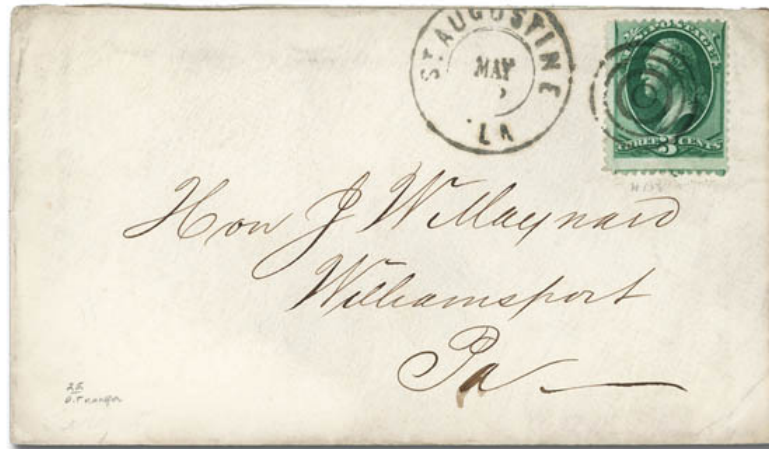 ST. AUGUSTINE
MAY
LA
U.S. POSTAGE
THREE 3 CENTS
Hon J W Maynard
Williamsport
Pa
25